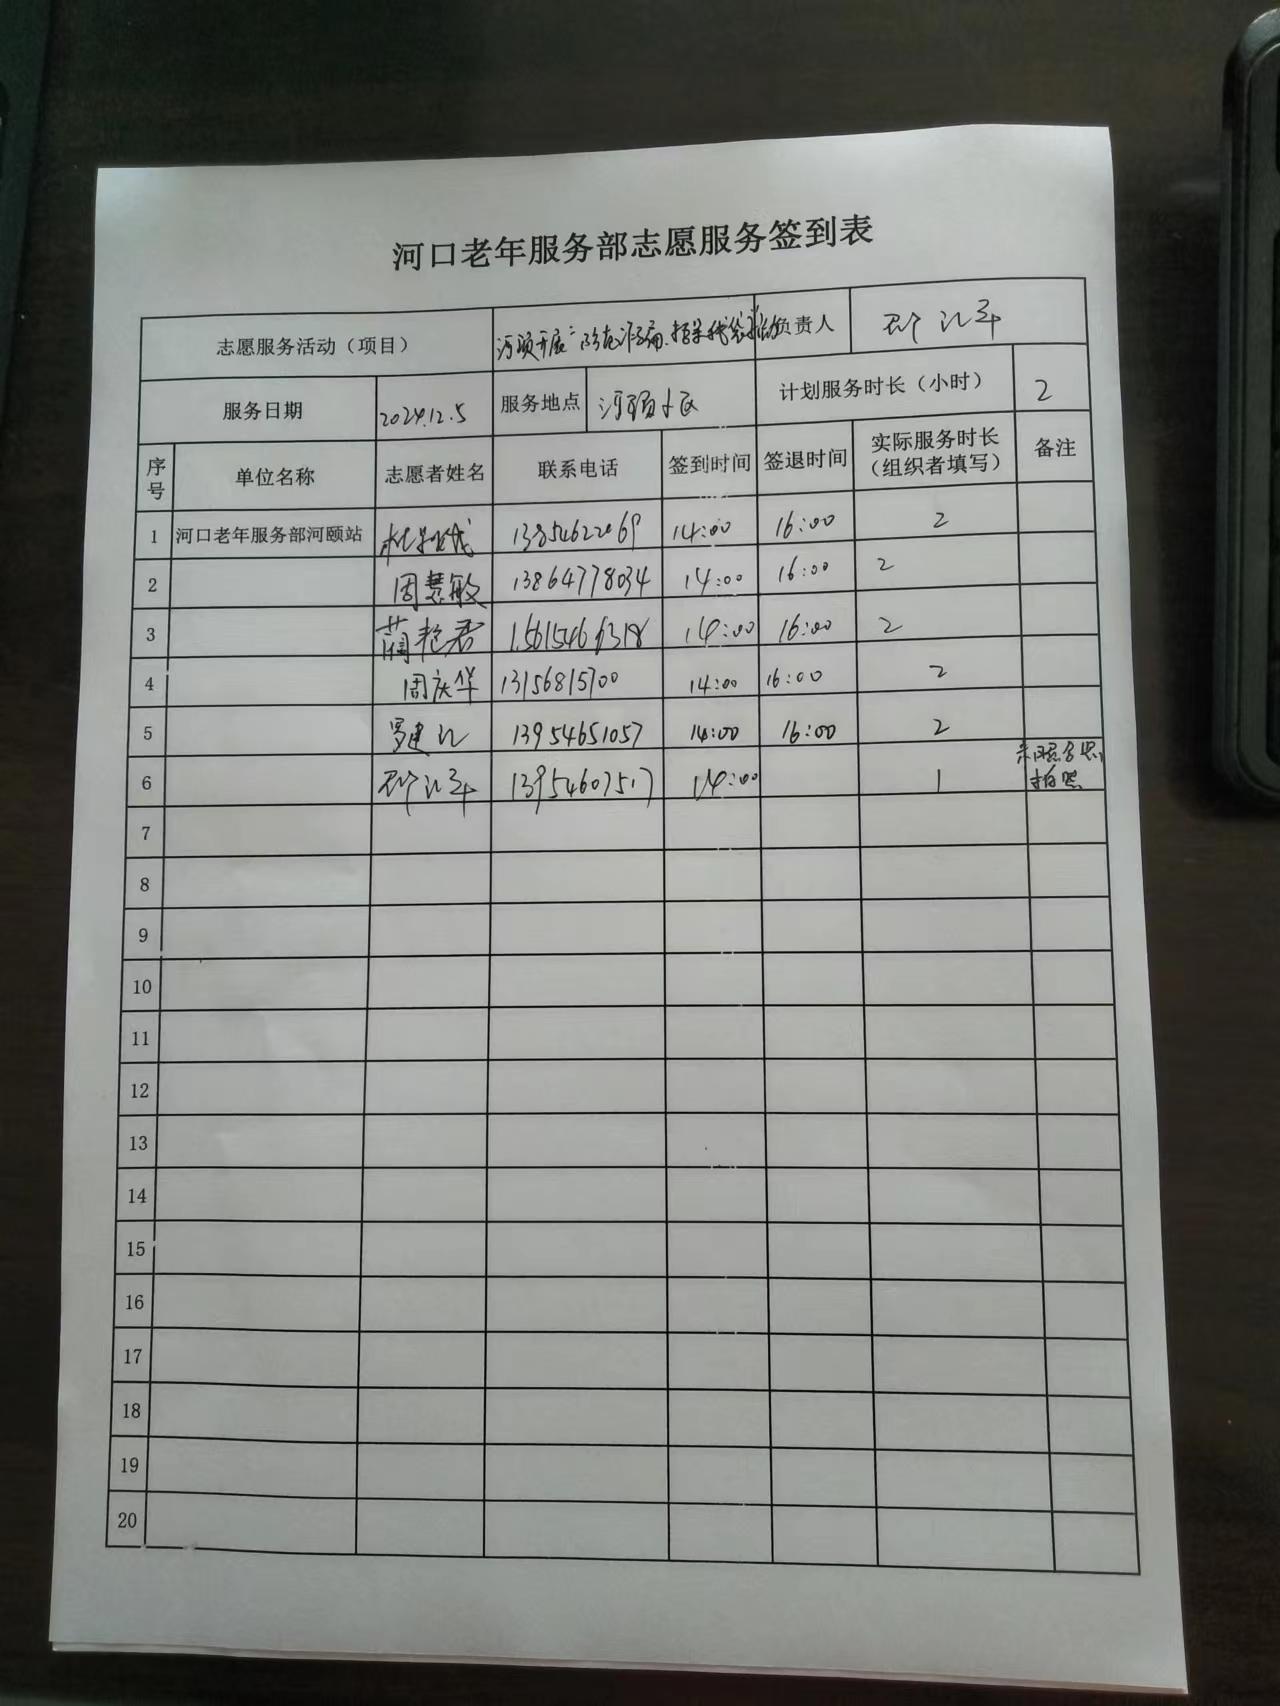 河口老年服务部志愿服务签到表
志愿服务活动（项目） 负责人
服务日期 2024.12.5 服务地点 计划服务时长（小时） 2
序号 单位名称 志愿者姓名 联系电话 签到时间 签退时间 实际服务时长（组织者填写） 备注
1 河口老年服务部河颐站 13854622069 14:00 16:00 2
2 周慧敏 13864778034 14:00 16:00 2
3 艳君 15615466318 14:00 16:00 2
4 周庆华 13156815700 14:00 16:00 2
5 罗建 13954651057 14:00 16:00 2
6 13954607517 14:00 1 拍照
7
8
9
10
11
12
13
14
15
16
17
18
19
20